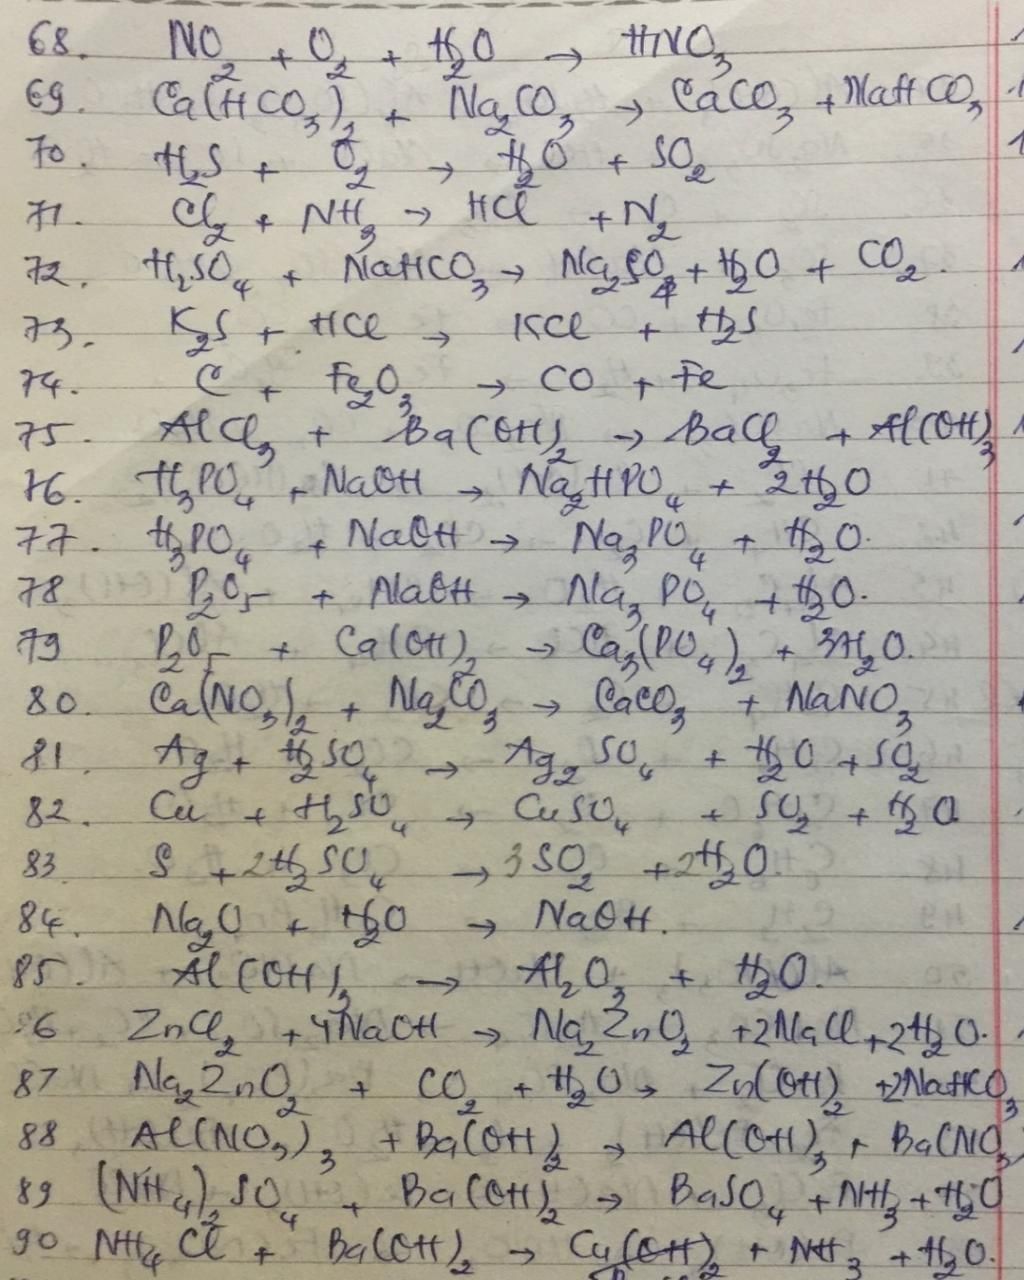 68. NO₂ + O₂ + H₂O → HNO₃
69. Ca(HCO₃)₂ + Na₂CO₃ → CaCO₃ + NaHCO₃
70. H₂S + O₂ → H₂O + SO₂
71. Cl₂ + NH₃ → HCl + N₂
72. H₂SO₄ + NaHCO₃ → Na₂SO₄ + H₂O + CO₂.
73. K₂S + HCl → KCl + H₂S
74. C + Fe₂O₃ → CO + Fe
75. AlCl₃ + Ba(OH)₂ → BaCl₂ + Al(OH)₃
76. H₃PO₄ + NaOH → Na₂HPO₄ + 2H₂O
77. H₃PO₄ + NaOH → Na₃PO₄ + H₂O.
78 P₂O₅ + NaOH → Na₃PO₄ + H₂O.
79 P₂O₅ + Ca(OH)₂ → Ca₃(PO₄)₂ + 3H₂O.
80. Ca(NO₃)₂ + Na₂CO₃ → CaCO₃ + NaNO₃
81. Ag + H₂SO₄ → Ag₂SO₄ + H₂O + SO₂
82. Cu + H₂SO₄ → CuSO₄ + SO₂ + H₂O
83. S + 2H₂SO₄ → 3SO₂ + 2H₂O.
84. Na₂O + H₂O → NaOH.
85. Al(OH)₃ → Al₂O₃ + H₂O.
86 ZnCl₂ + 4NaOH → Na₂ZnO₂ + 2NaCl + 2H₂O.
87 Na₂ZnO₂ + CO₂ + H₂O → Zn(OH)₂ + 2NaHCO₃
88 Al(NO₃)₃ + Ba(OH)₂ → Al(OH)₃ + Ba(NO₃
89 (NH₄)₂SO₄ + Ba(OH)₂ → BaSO₄ + NH₃ + H₂O
90 NH₄Cl + Ba(OH)₂ → + NH₃ + H₂O.